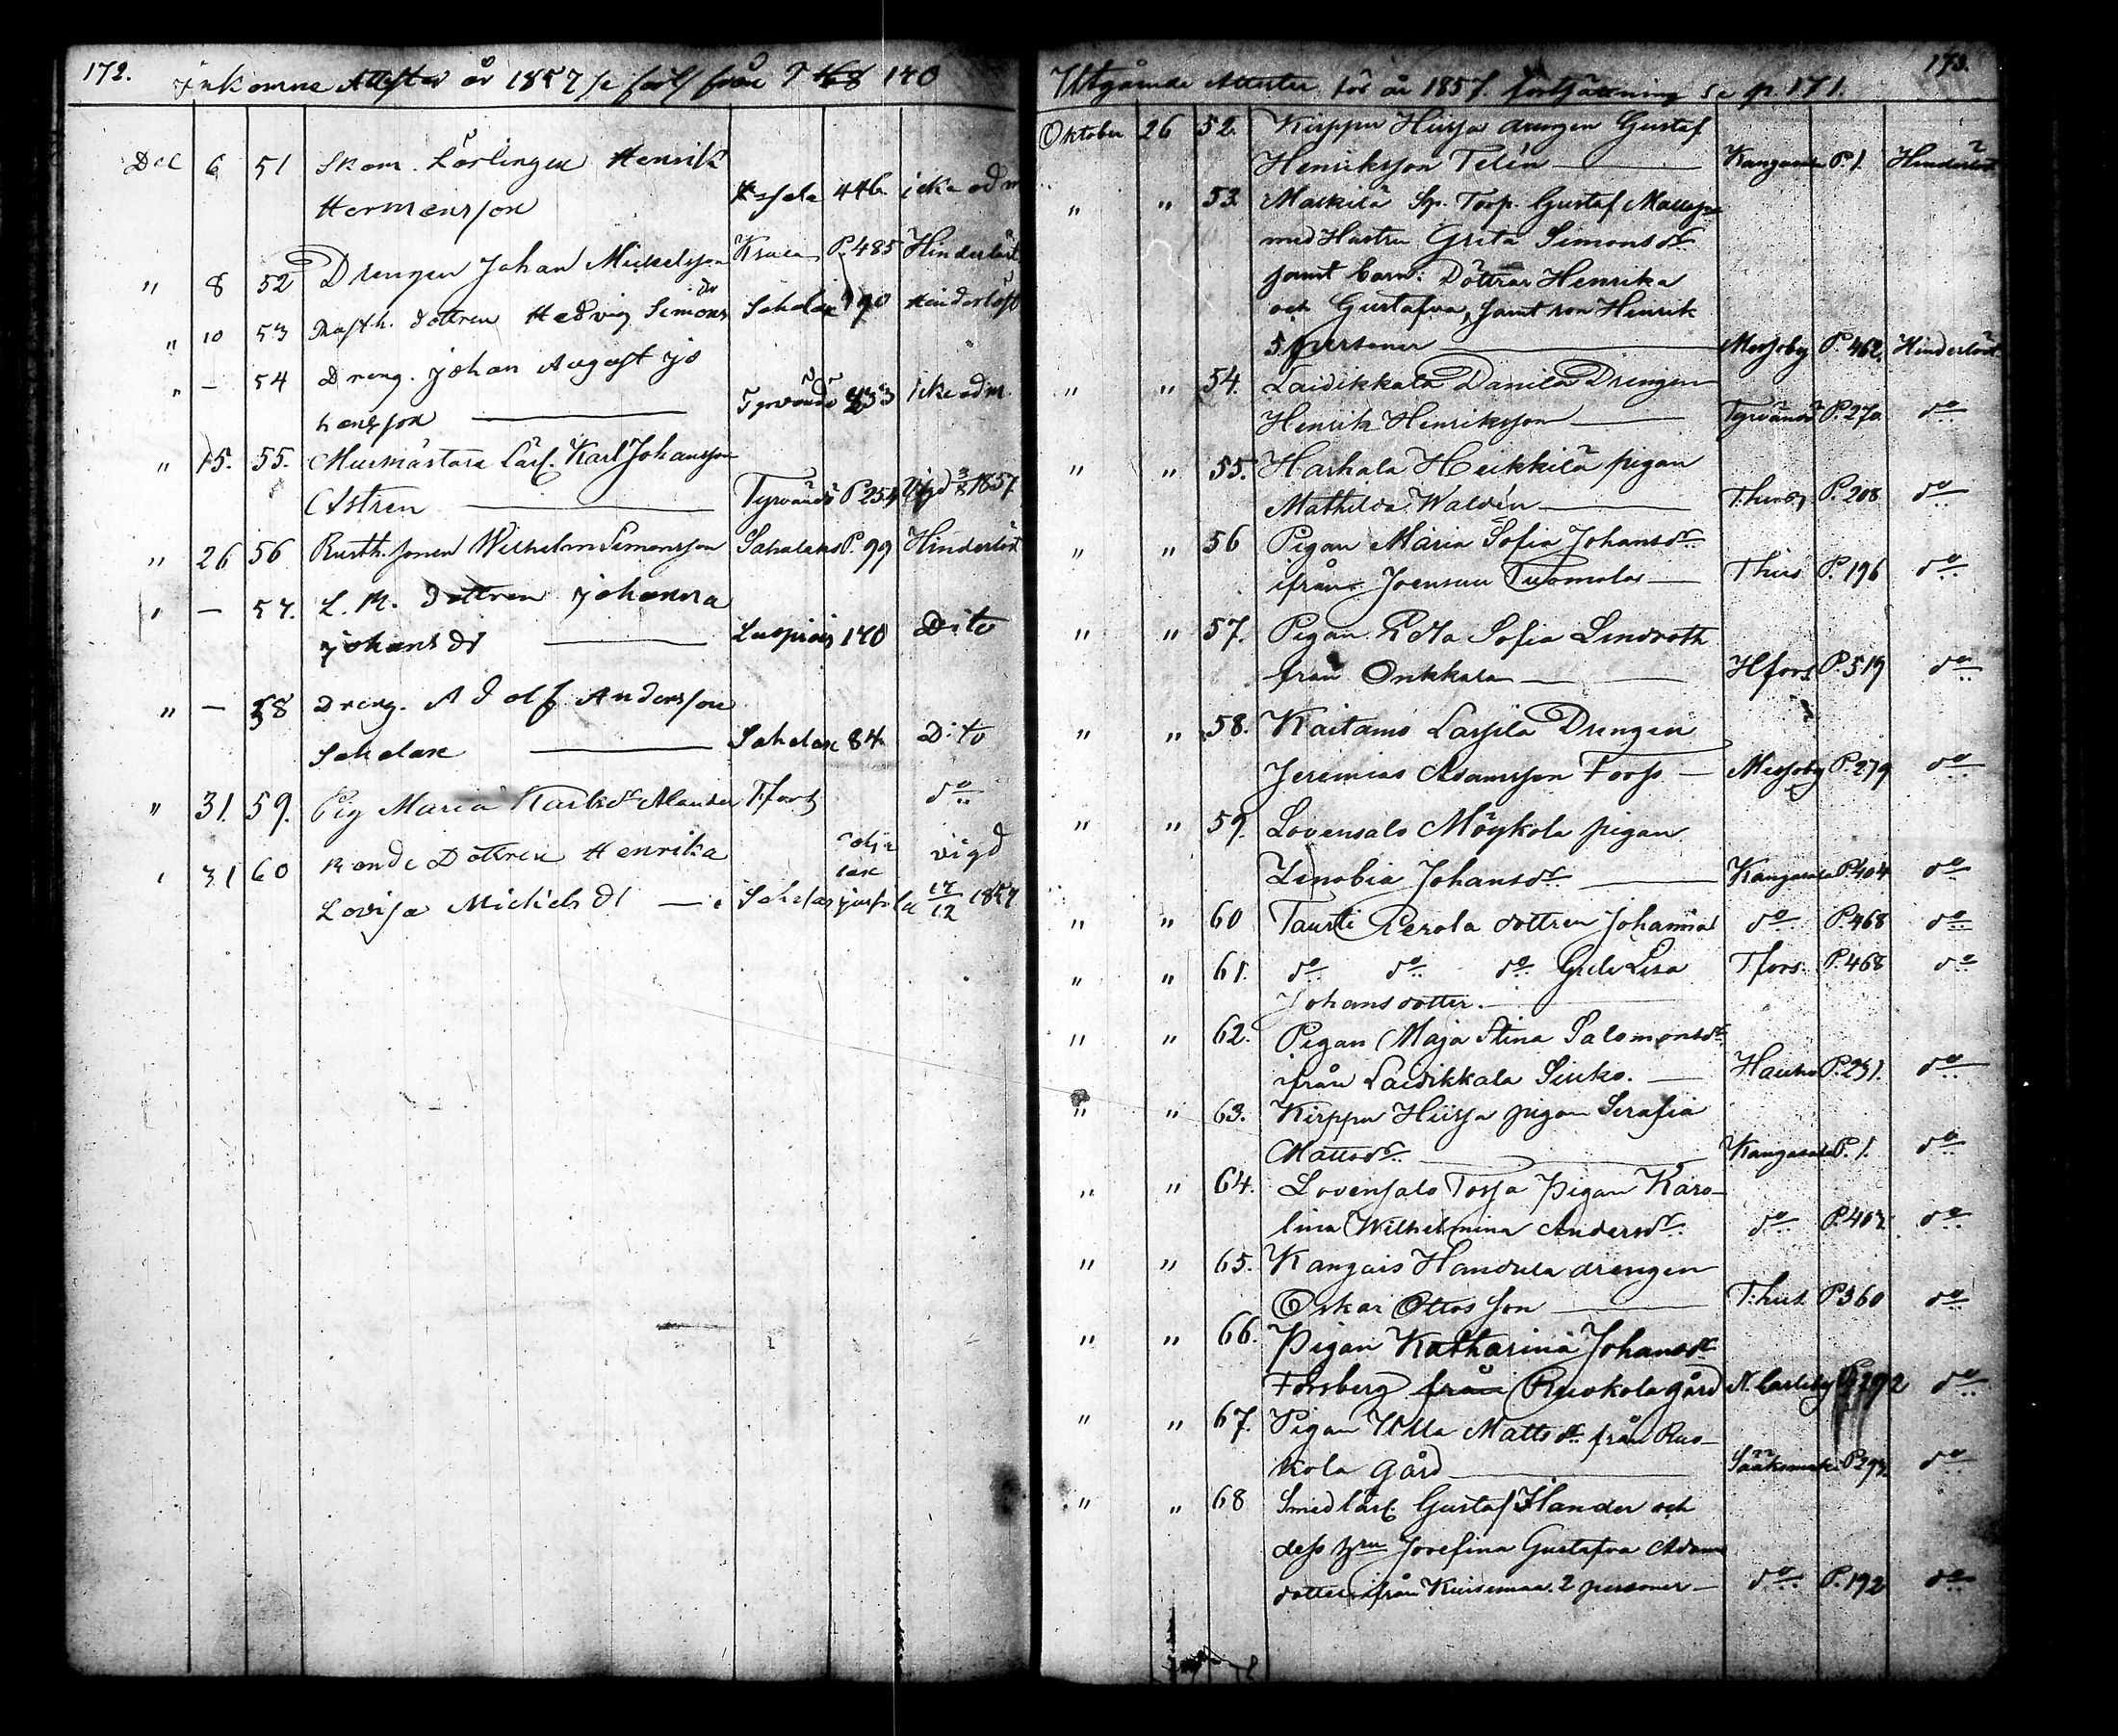 172.
Inkomne Attester år 1857 se förl från P 168 140
Dec 6 51 Skom. Lärlingen Henrik
Hermansson icke adm
446
" 8 52 Drengen Johan Mickelsson P. 485 Hinderlöst
" 10 53 Rusth. dottren Hedvig Simonsdr Sahalax 190 Hinderlöst
" — 54 Dreng. Johan August Jo
hansson Tyrvändö 233 icke adm.
" 15. 55. Murmästare Lärl. Karl Johansson
Astren Tyrvändö P. 254 1857
" 26 56 Rusth. sonen Wilhelm Simonsson Sahalaks P. 99 Hinderlöst
" — 57. L. M. dottren Johanna
Johansdr Luopiois 140 Dito
" — 58 Dreng. Adolf Andersson
Sahalax Sahalax 84 Dito
" 31. 59. Pig Maria Karlsdr Alander T:fors do
" 31 60 Bonde Dottren Henrika vigd
Lovisa Mickelsdr Sahalax 17/12 1857
173.
Utgående Attester för år 1857. fortsättning se p. 171.
Oktober 26 52. Kirppu Hirsa drengen Gustaf
Henriksson Telén Kangasala P. 1. Hinderlöst
" " 53. Maikila Sp. Torp. Gustaf Mattsson
med Hustru Greta Simonsdr
jamt barn: Döttrar Henrika
och Gustafva, samt son Henrik
5 personer Messoby P. 462. Hinderlöst
" " 54. Laidikkala Danila Drengen
Henrik Henriksson Tyrvändö P. 270. do
" " 55. Harhala Heikkilä pigan
Mathilda Waldén P. 208 do
" " 56 Pigan Maria Sofia Johansdr
ifrån Joensuu Tuomolas Thus P. 196 do
" " 57. Pigan Edla Sofia Lindroth
från Onkkala Hfors P. 519 do
" " 58. Kaitamo Lassila Drengen
Jeremias Adamsson Forss Messoby P. 279 do
" " 59. Lovensalo Möykola pigan
Zenobia Johansdr Kangasala P. 404 do
" " 60 Tausti Perola dottren Johanna do P. 468 do
" " 61. do do do Greta Lisa Tfors. P. 468 do
Johansdotter.
" " 62. Pigan Maja Stina Salomonsdr
ifrån Laidikkala Sinko. Hauho P. 251. do
" " 63. Kirppu Hirsa pigan Serafia
Mattsdr Kangasala P. 1. do
" " 64. Lovensalo Tossa Pigan Karo-
lina Wilhelmina Andersdr do P. 403. do
" " 65. Kangais Handula drengen
Oskar Ottosson T:hus P. 360 do
" " 66. Pigan Katharina Johansdr
Forsberg från Ruokola gård N. Carleby 292 do
" " 67. Pigan Ulla Mattsdr från Ruo-
kola gård Sääksmäki P. 292 do
" " 68 Smedlärl. Gustaf Ilander och
dess hru Josefina Gustafva Adams
dotter ifrån Kuisemaa. 2 personer do P. 192 do